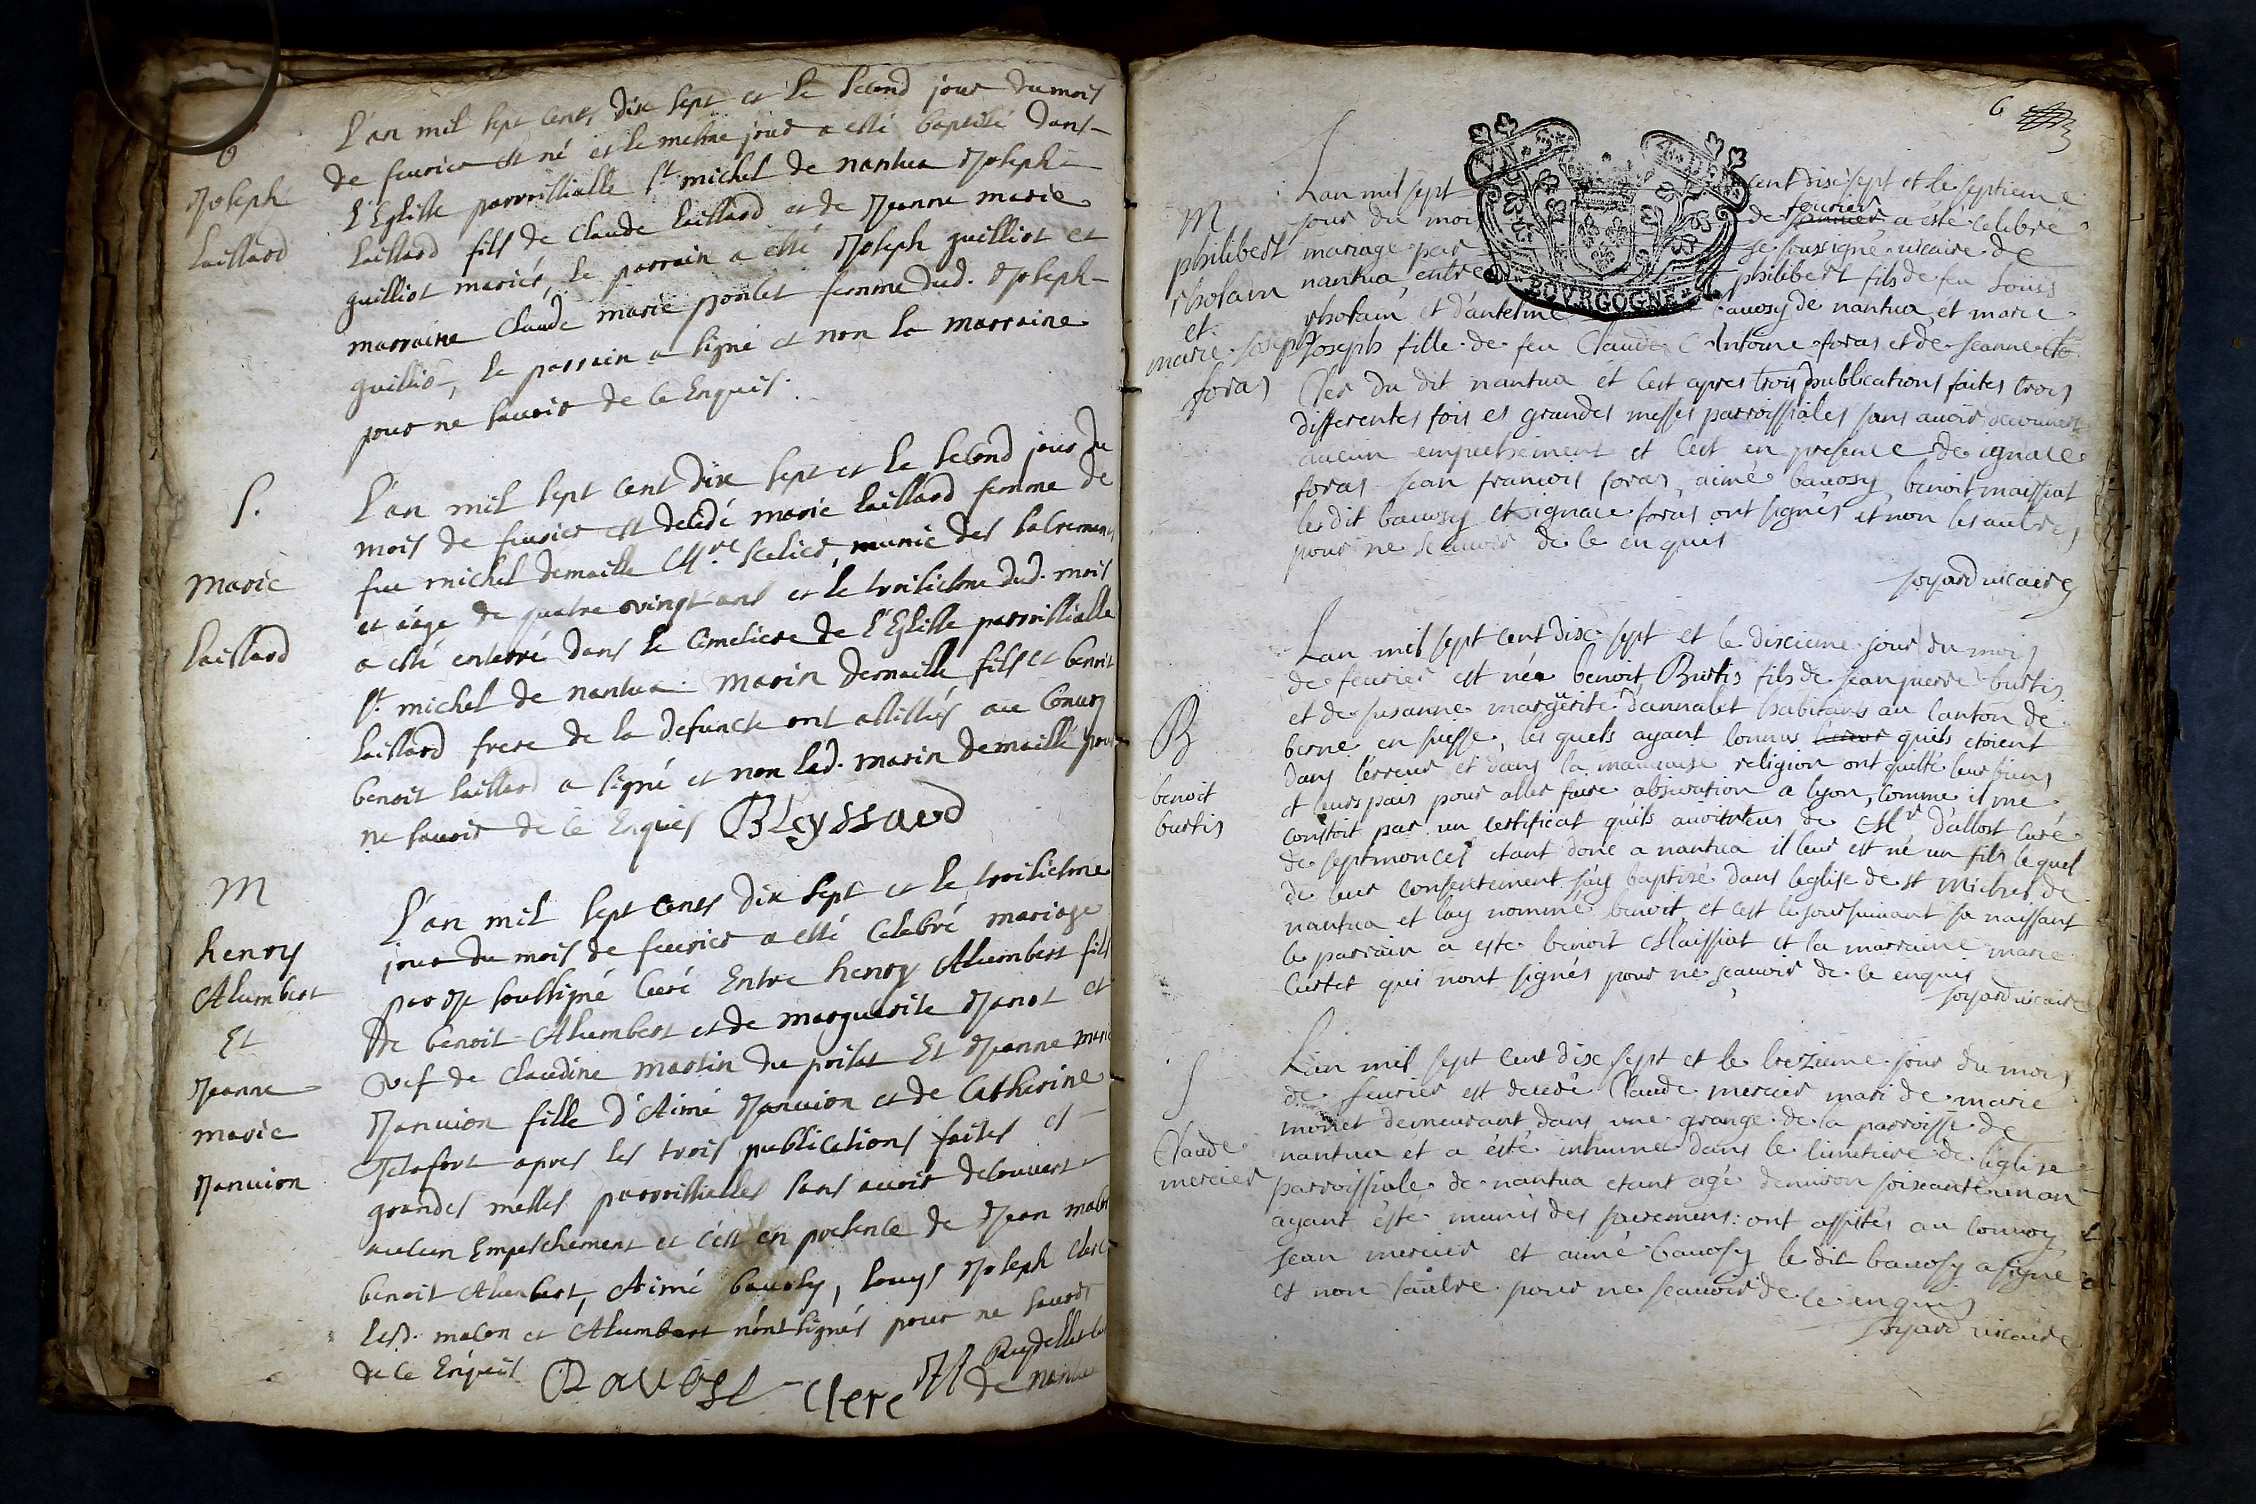 L'an mil sept cents dix sept et le second jour du mois
de feurier est né et le mesme jour a esté baptisé dans
l'Eglise parroissialle st michel de nantua Joseph
laissard fils de Claude laissard et de Jeanne marie
guilliot mariés, le parrain a esté Joseph guilliot et
marraine Claude marie poncet femme dud. Joseph
guilliot, le parrain a signé et non la marraine
pour ne sauoir de ce Enquis.
Joseph
laissard
S.
marie
laissard
L'an mil sept cent dix sept et le second jour du
mois de feurier est decedé marie laissard femme de
feu michel demaille Mre scelier, munie des sacremens
et âge de quatre vingt ans et le troisiesme dud. mois
a esté enterré dans le Cimetiere de l'Eglise parroissialle
st. michel de nantua. marin demaille fils et benoit
laissard frere de la defuncte ont assistés au Conuoy
benoit laissard a signé et non led. marin demaille pour
ne sauoir de ce Enquis BLeyssard
M
henry
Alumbert
Et
Jeanne
marie
Januion
L'an mil sept cents dix sept et le troisiesme
jour du mois de feurier a esté Celebré mariage
par Je soussigné Curé Entre henry Alumbert fils
de benoit Alumbert et de marguerite Janot et
vef de Claudine martin du poisat Et Jeanne marie
Januion fille d'Aimé Januion et de Catherine
apres les trois publications faites et
grandes messes parroissielles sans auoir descouuert
aucun Empeschement et c'est en presence de Jean
benoit Alumbert, Aimé bauosy, Louys Joseph Clerc
lesd. macon et Alumbert n'ont signés pour ne sauoir
de ce Enquis Bavosi Clerc
de nantua
6
VN
BOVRGOGNE
M
philibert
rholam
et
marie joseph
foras
Lan mil sept cent dix sept et le septieme
jour du moi de feurier a esté celebré
mariage par Je soussigné uicaire de
nantua, entre philibert fils de feu Louis
rholam et d'antelme bauosy de nantua et marie
Joseph fille de feu Claude Antoine foras et de jeanne
du dit nantua et cest apres trois publications faites trois
differentes fois es grandes messes parroissiales sans auoir decouuert
aucun empechement et cest en presence de ignace
foras jean francois foras, aimé bauosy, benoit maissiat
les dit bauosy et ignace foras ont signés et non les autres
pour ne scauoir de ce enquis
Joyard uicaire
B
benoit
burtis
Lan mil sept cent dix sept et le dixieme jour du mois
de feurier est née benoit Burtis fils de jean pierre burtis
et de susanne margüerite dannalet habitans au canton de
berne en suisse, les quels ayant connus quils etoient
dans l'erreur et dans la mauuaise religion ont quitté leur biens
et leurs pais pour aller faire abiuration a lyon, comme il me
constoit par un certificat quils auoit eus de Mr d'allost curé
de septmoncel etant donc a nantua il leur est né un fils lequel
de leur consentement jay baptizé dans leglise de st Michel de
nantua et lay nommé benoit et cest le jour suiuant sa naissant
le parrain a este benoit Maissiat et la marraine marie
Curtet qui nont signés pour ne sçauoir de ce enquis
Joyard uicaire
S
Claude
mercier
Lan mil sept cent dix sept et le trezieme jour du mois
de feurier est decedé Claude mercier mari de marie
monet demeurant dans une grange de la parroisse de
nantua et a été inhumé dans le cimetiere de leglise
parroissiale de nantua etant agé denuiron soixante un an
ayant été munis des sacremens: ont assistés au conuoy
jean mercier et aimé bauosy le dit bauosy a signé
et non lautre pour ne scauoir de ce enquis
Joyard uicaire